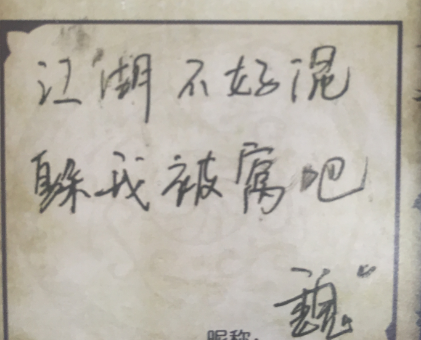 江湖不好混
躲我被窝吧
魏
昵称：